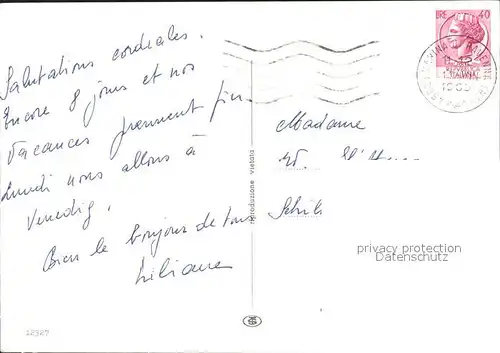 Salutations cordiales.
Encore 8 jours et nos
vacances prennent fin.
Lundi nous allons à
Venedig.
Bien le bonjour de tous
Liliane
LIRE 40
1963
Madame
riproduzione vietata
privacy protection
Datenschutz
12327